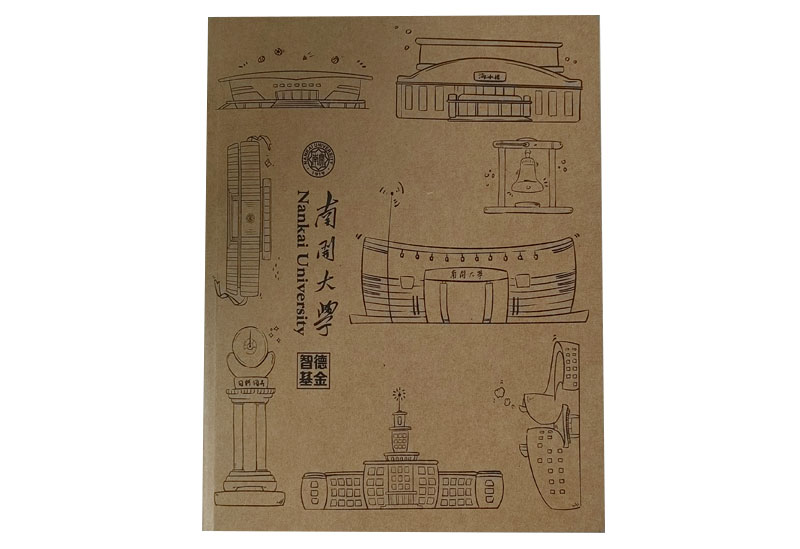 NANKAI UNIVERSITY
1919
南開大學
Nankai University
智德
基金
南開大學